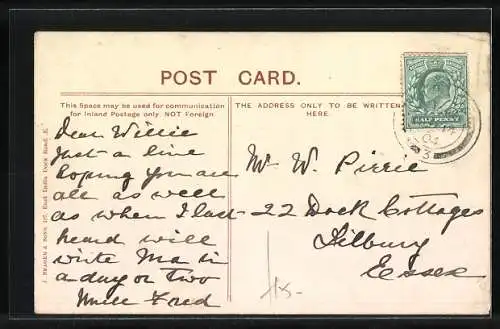 POST CARD.
This Space may be used for communication
for Inland Postage only, NOT Foreign
THE ADDRESS ONLY TO BE WRITTEN
HERE.
HALF PENNY
04
Dear Willie
Just a line
hoping you are
all as well
as when I last
heard will
write Ma in
a day or two
Fred
Mr W. Pirrie
22 Dock Cottages
Tilbury
Essex
& SONS, 197, East India Dock Road, E.